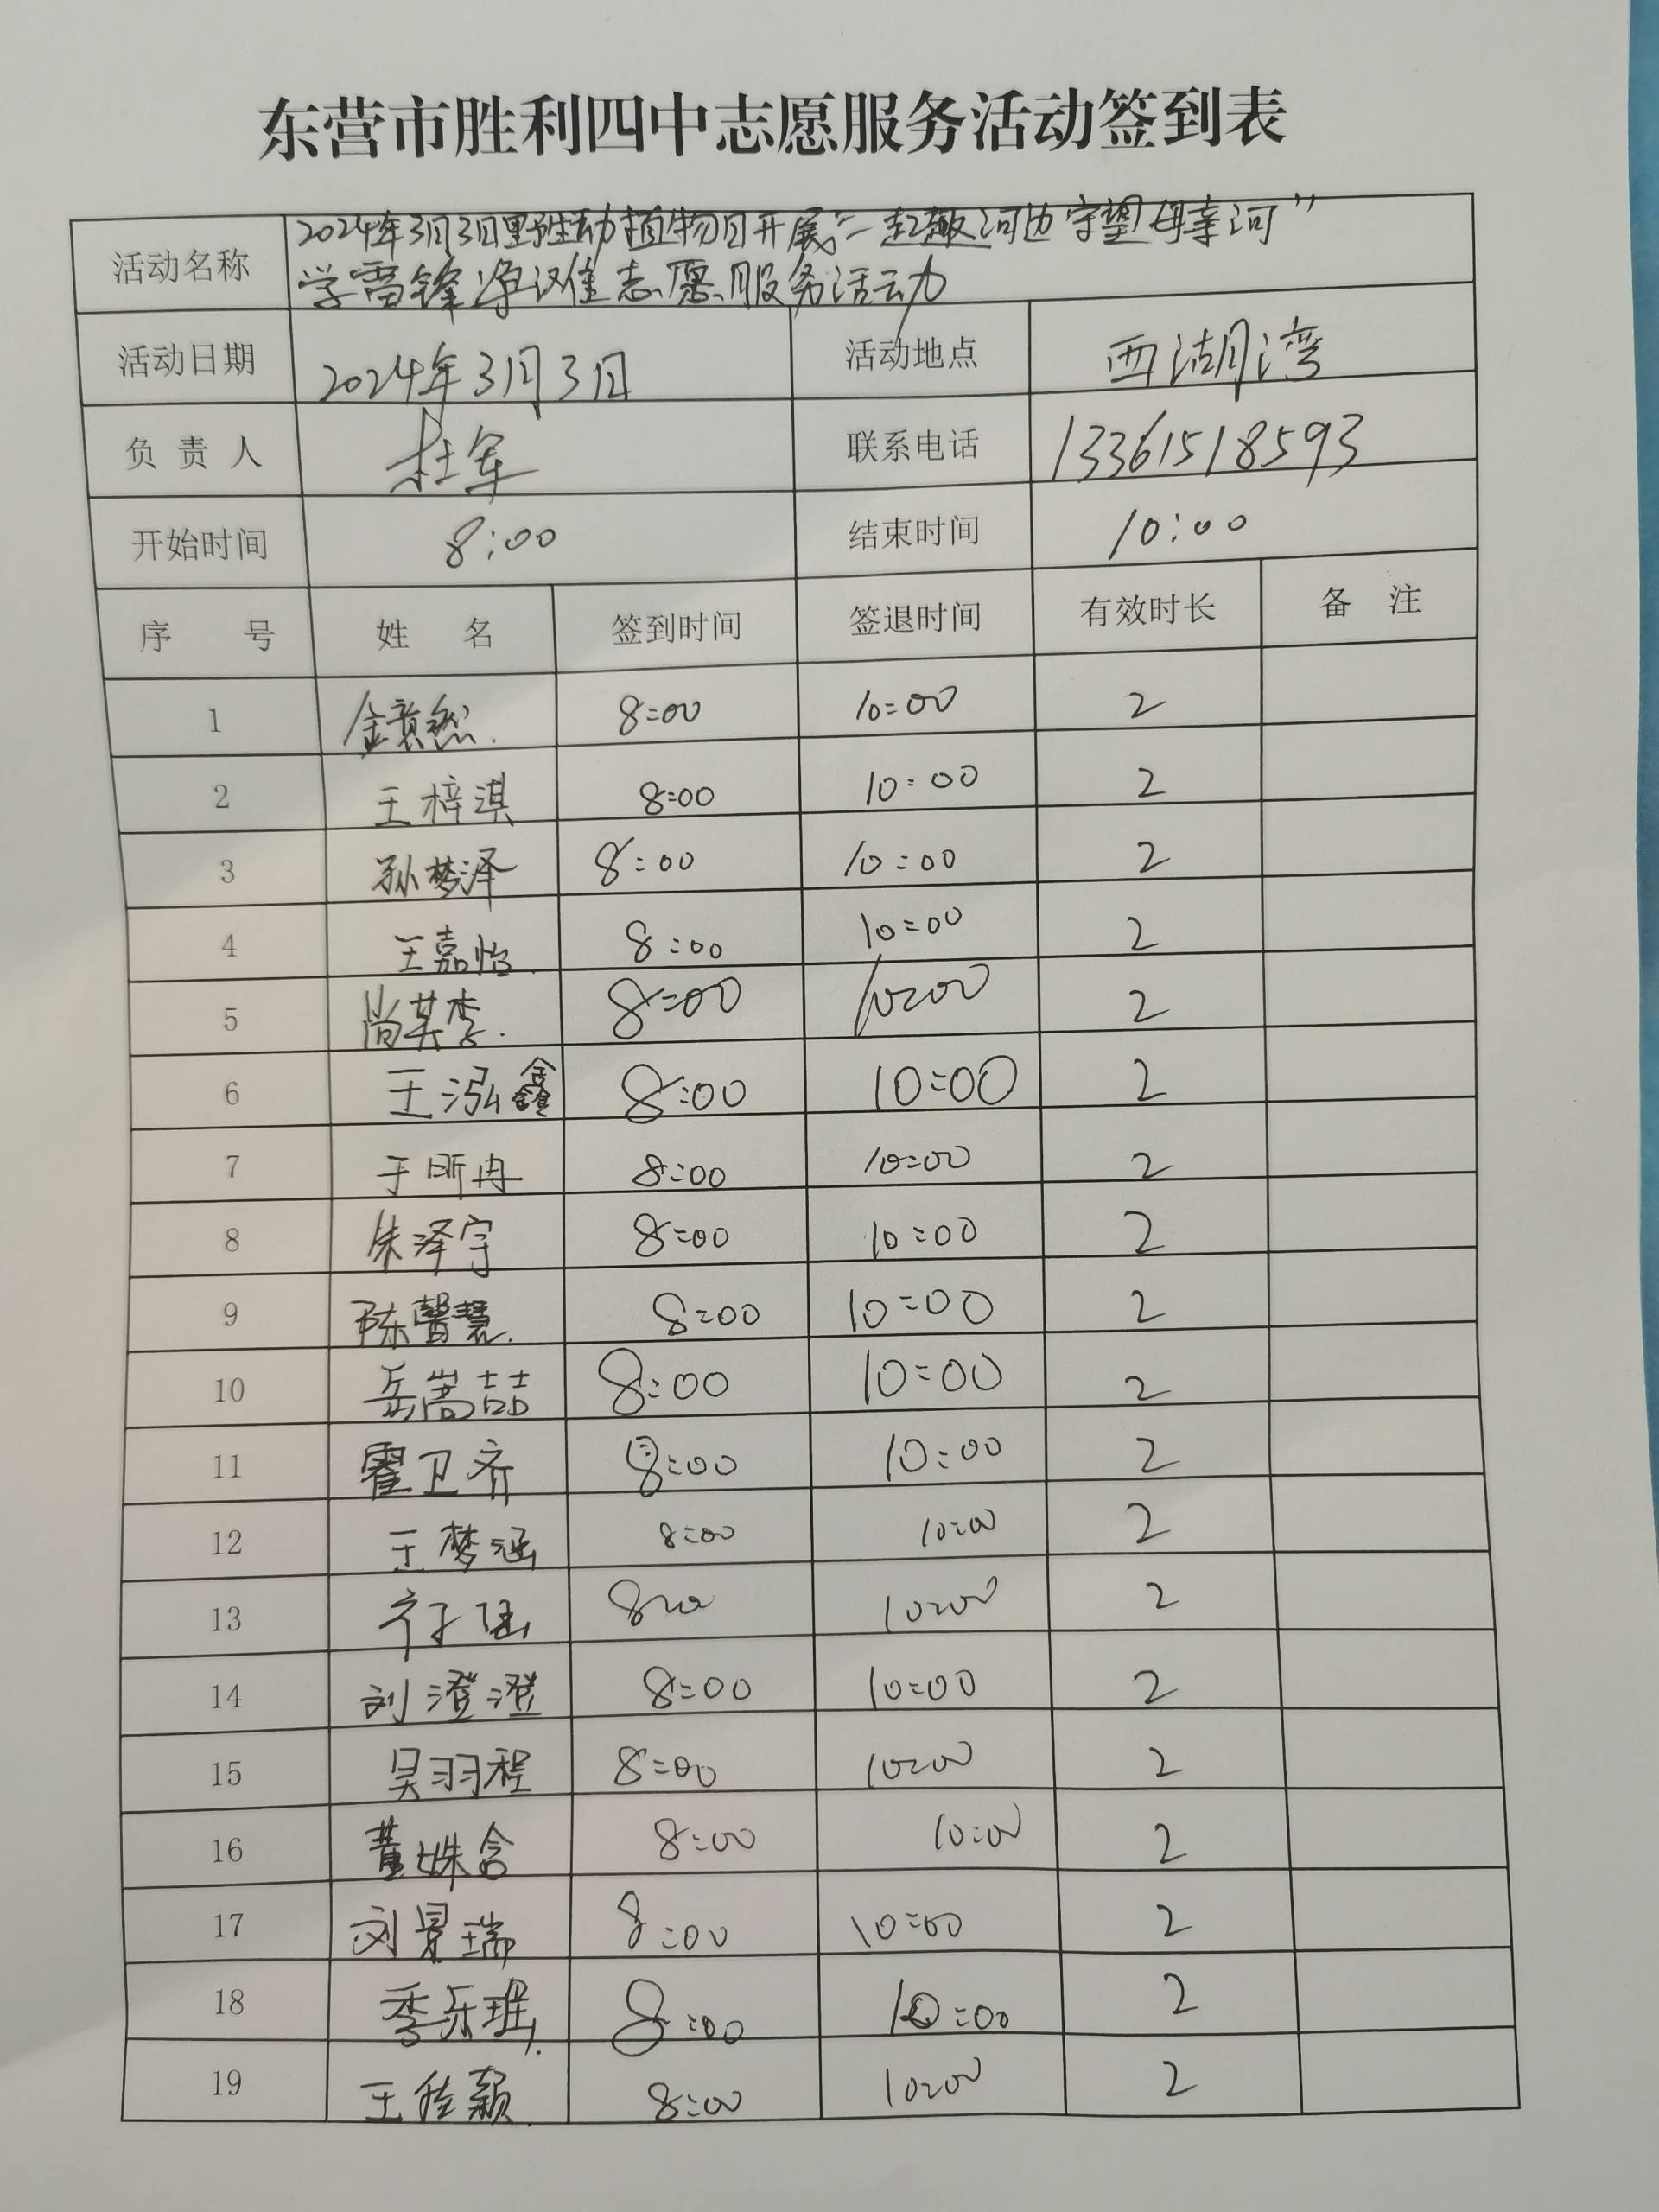 东营市胜利四中志愿服务活动签到表
活动名称 2024年3月3日野生动植物日开展“一起趣河边守望母亲河”
学雷锋净滩志愿服务活动
活动日期 2024年3月3日 活动地点 西湖湾
负责人 杜军 联系电话 13361518593
开始时间 8:00 结束时间 10:00
序 号 姓 名 签到时间 签退时间 有效时长 备 注
1 8:00 10:00 2
2 王梓淇 8:00 10:00 2
3 孙梦泽 8:00 10:00 2
4 王嘉怡 8:00 10:00 2
5 尚其李 8:00 10:00 2
6 王泓鑫 8:00 10:00 2
7 于昕冉 8:00 10:00 2
8 朱泽宇 8:00 10:00 2
9 陈馨慧 8:00 10:00 2
10 岳嵩喆 8:00 10:00 2
11 霍卫齐 8:00 10:00 2
12 王梦涵 8:00 10:00 2
13 8:00 10:00 2
14 刘澄澄 8:00 10:00 2
15 吴羽程 8:00 10:00 2
16 董姝含 8:00 10:00 2
17 刘景瑞 8:00 10:00 2
18 8:00 10:00 2
19 王佳颖 8:00 10:00 2